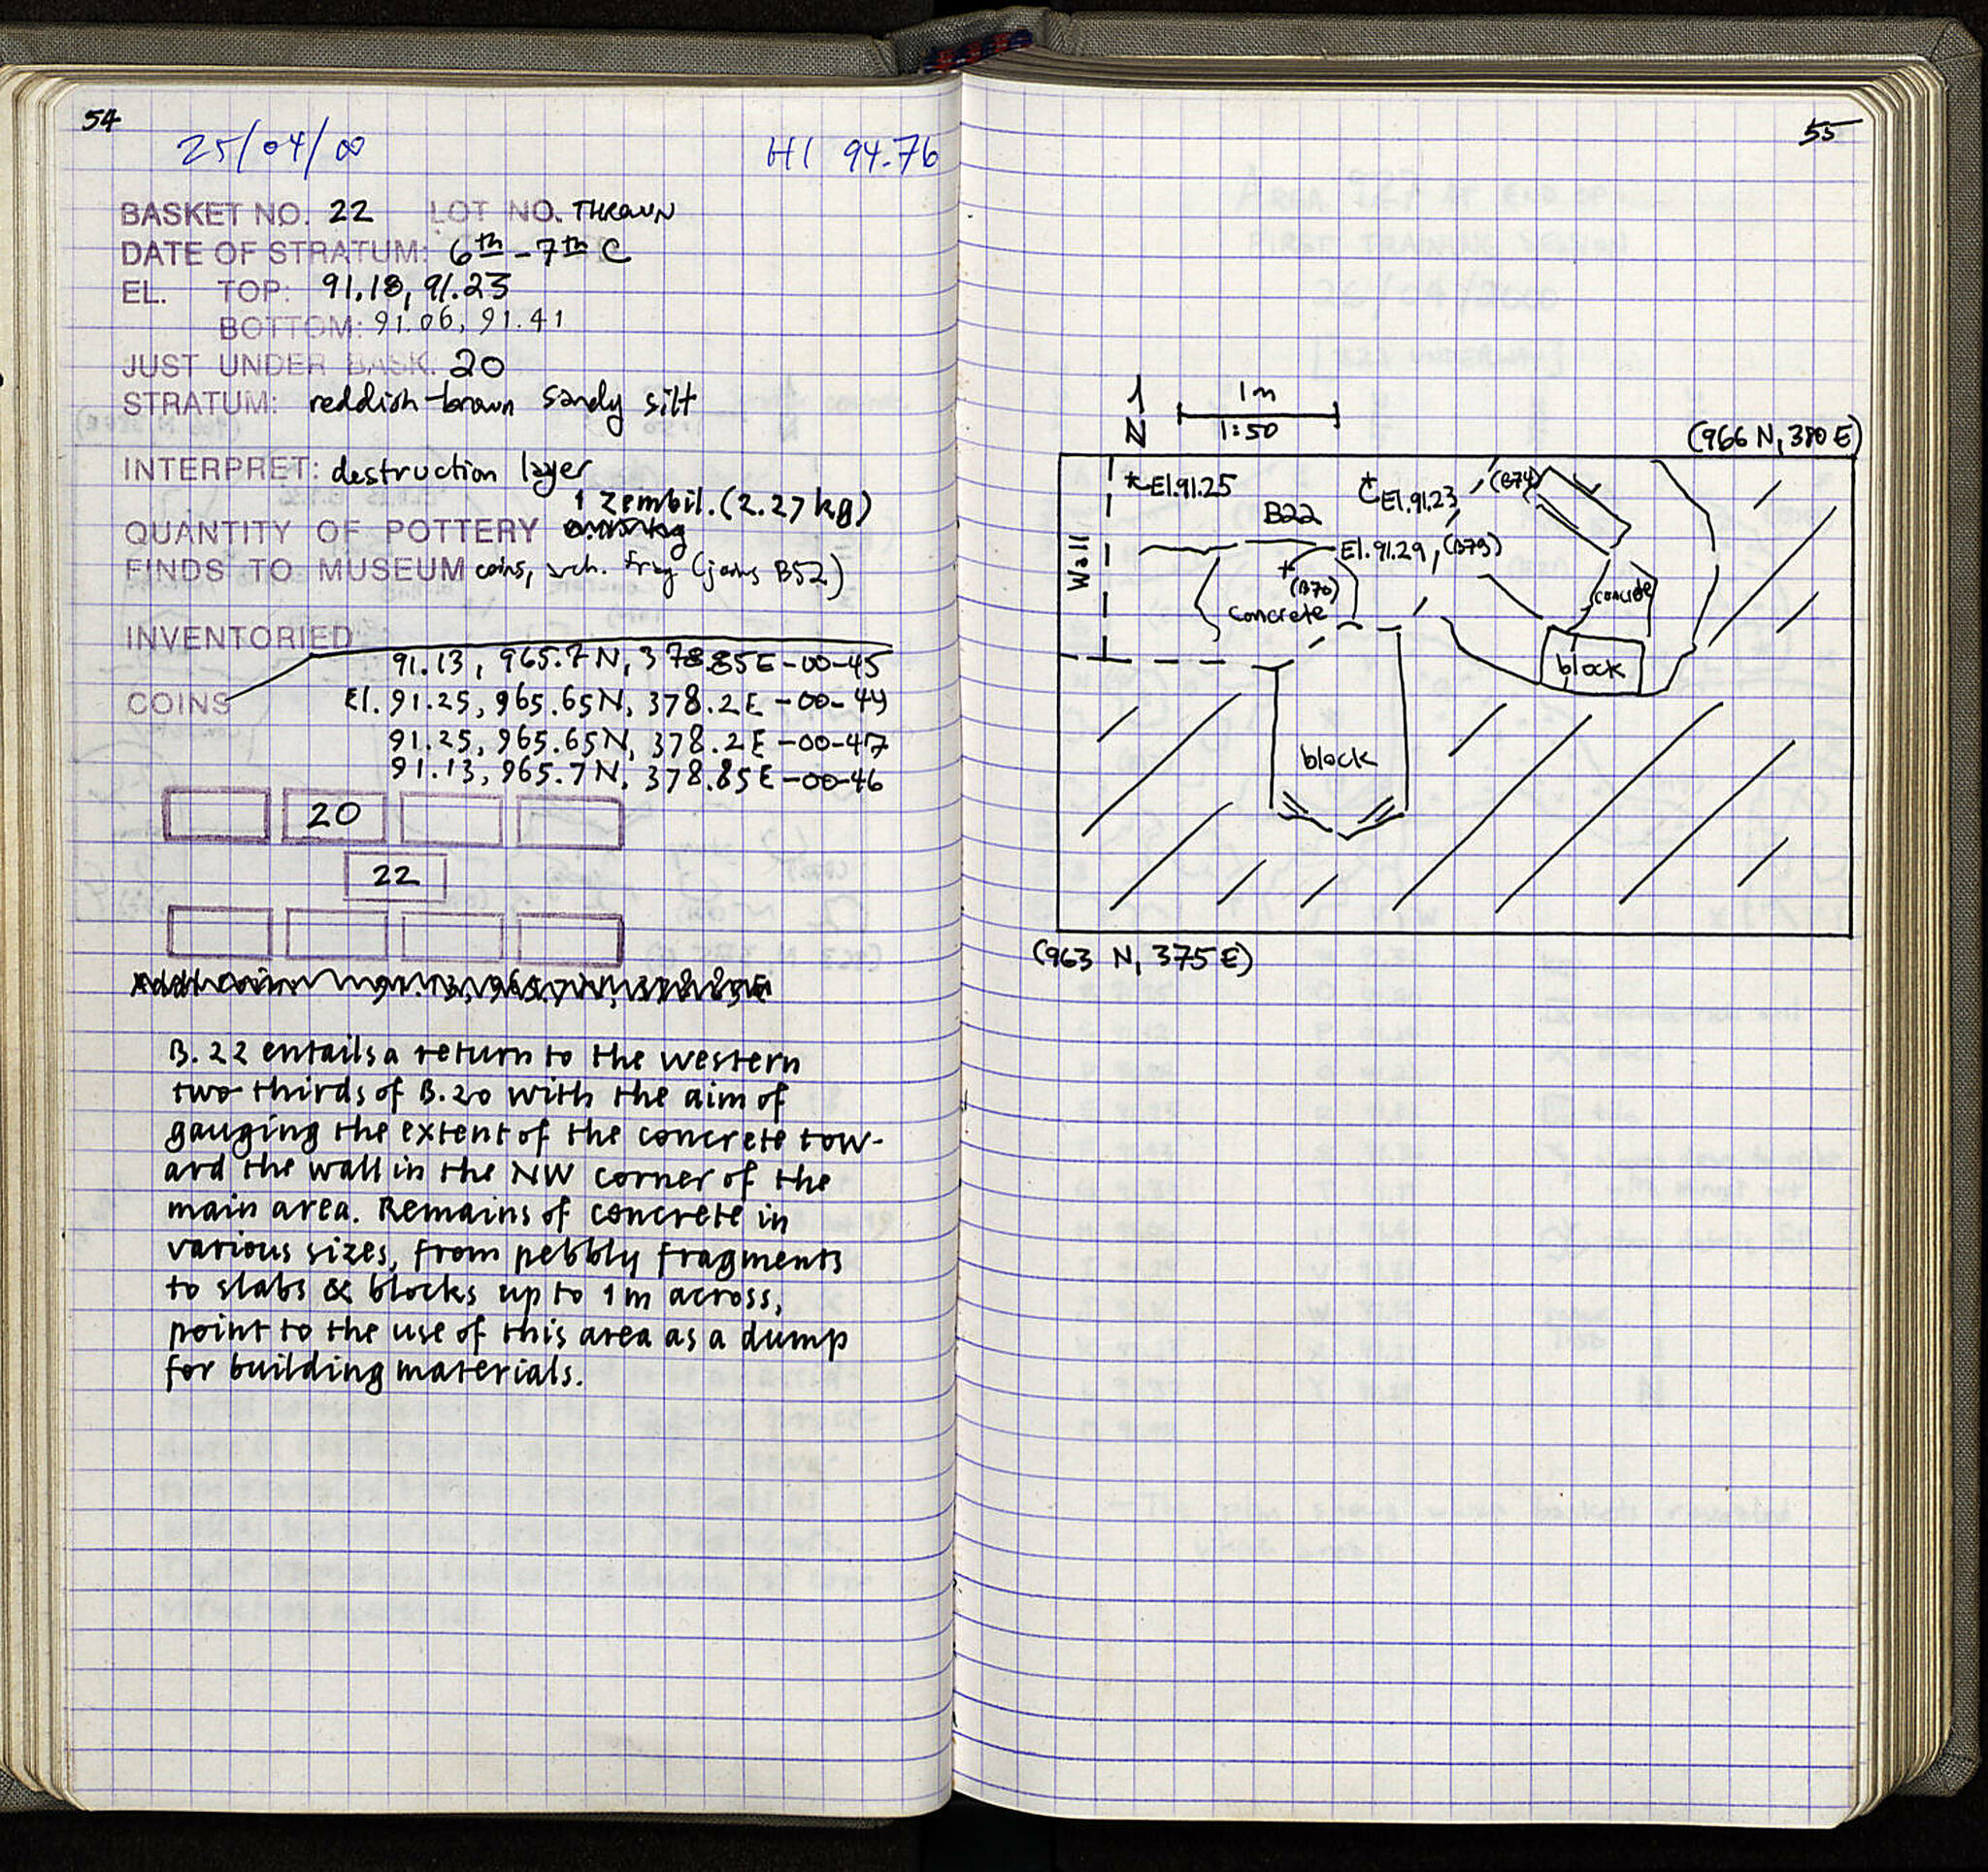 54
25/04/00 HI 94.76
BASKET NO. 22 LOT NO. THROWN
DATE OF STRATUM: 6th - 7th C
EL. TOP: 91.18, 91.23
BOTTOM: 91.06, 91.41
JUST UNDER BASK. 20
STRATUM: reddish-brown sandy silt
INTERPRET: destruction layer
1 zembil. (2.27 kg)
QUANTITY OF POTTERY
FINDS TO MUSEUM coins, arch. frag (joins B52)
INVENTORIED
91.13, 965.7N, 378.85E-00-45
COINS El. 91.25, 965.65N, 378.2E-00-44
91.25, 965.65N, 378.2E-00-47
91.13, 965.7N, 378.85E-00-46
20
22
B. 22 entails a return to the western
two thirds of B. 20 with the aim of
gauging the extent of the concrete tow-
ard the wall in the NW corner of the
main area. Remains of concrete in
various sizes, from pebbly fragments
to slabs & blocks up to 1m across,
point to the use of this area as a dump
for building materials.
55
1m
N 1:50
(966 N, 380 E)
*El.91.25 El.91.23 (B74)
B22
Wall El.91.29, (B73)
(B70)
concrete concrete
block
block
(963 N, 375E)